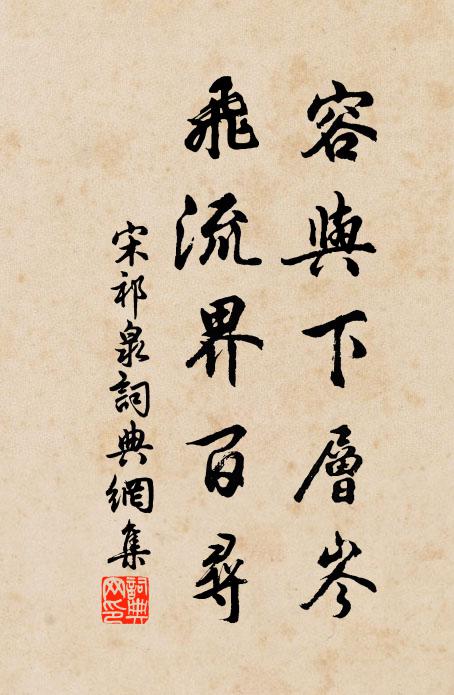 容與下層岑
飛流界百尋
宋祁泉詞典網集
詞典
网印